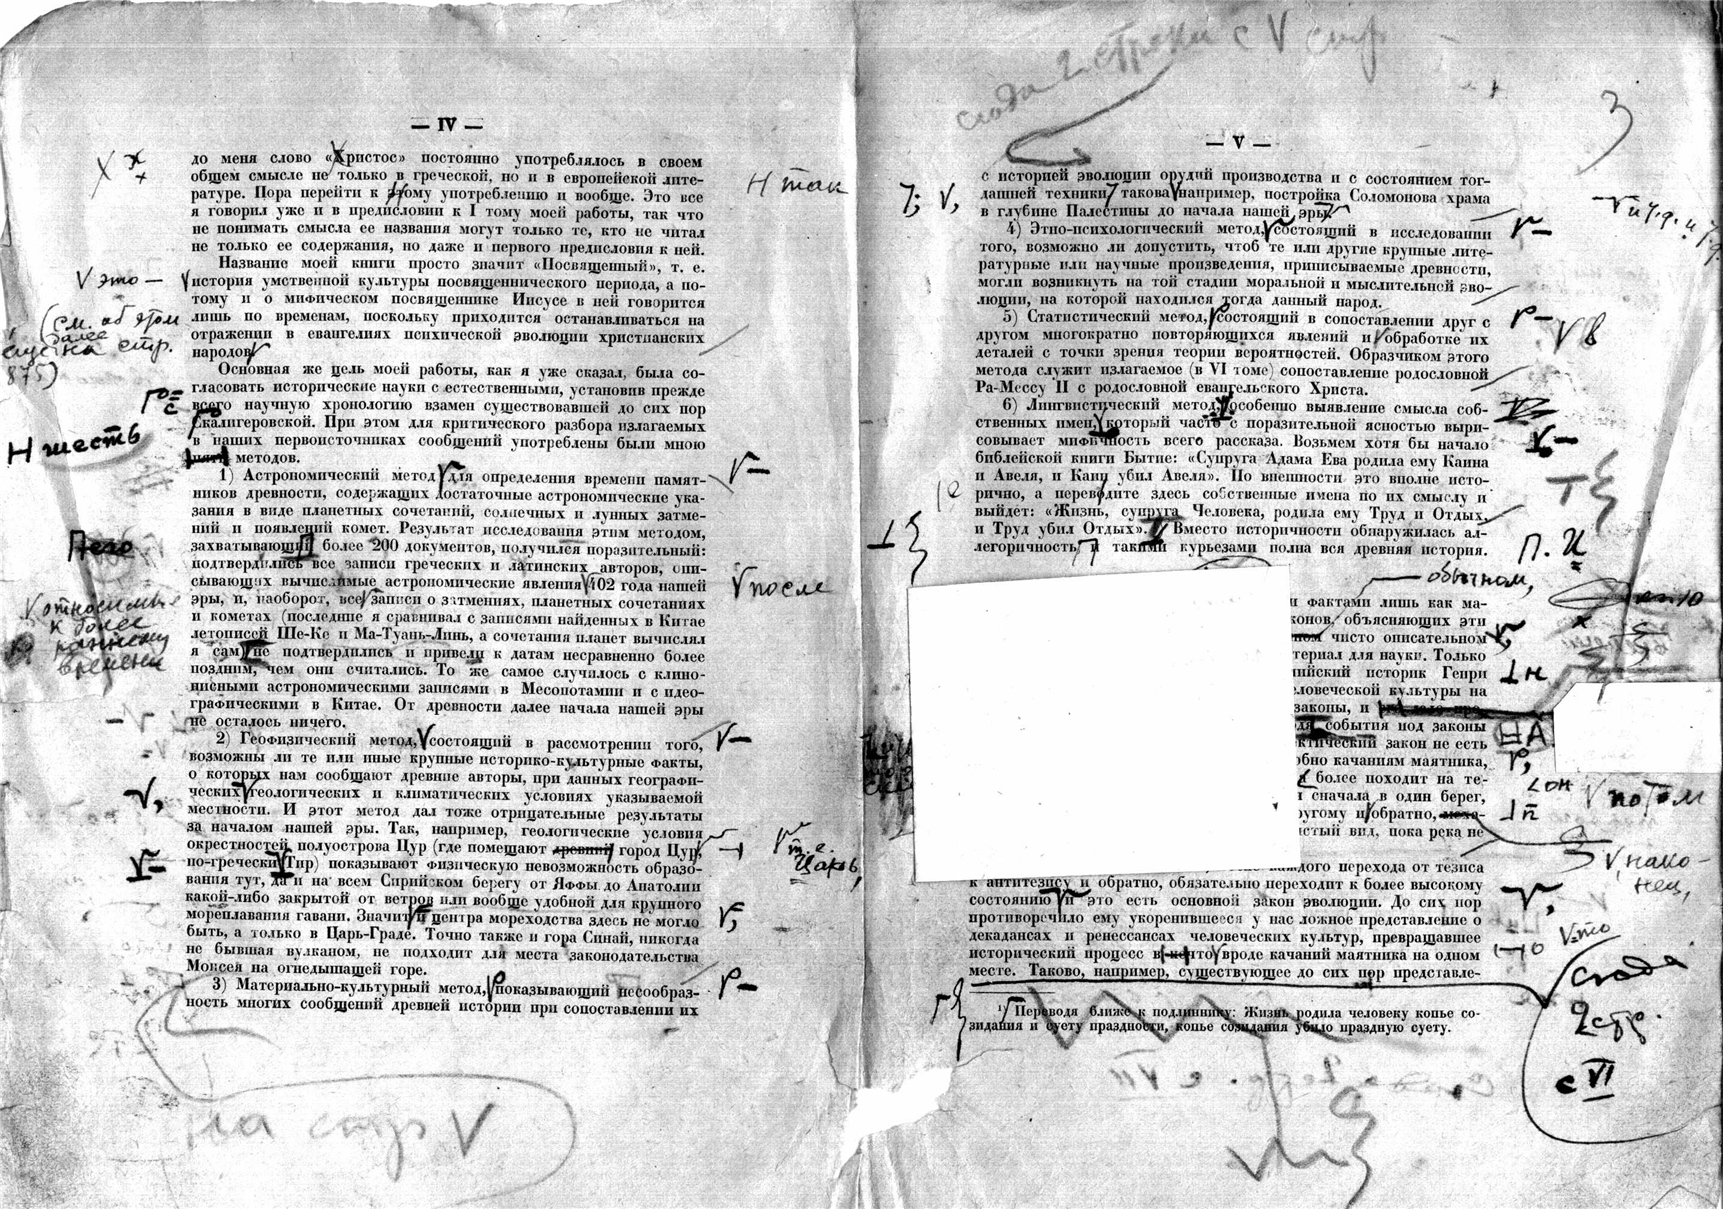 — IV —
до меня слово «Христос» постоянно употреблялось в своем
общем смысле не только в греческой, но и в европейской лите-
ратуре. Пора перейти к этому употреблению и вообще. Это все
я говорил уже и в предисловии к I тому моей работы, так что
не понимать смысла ее названия могут только те, кто не читал
не только ее содержания, но даже и первого предисловия к ней.
Название моей книги просто значит «Посвященный», т. е.
история умственной культуры посвященнического периода, а по-
тому и о мифическом посвященнике Иисусе в ней говорится
лишь по временам, поскольку приходится останавливаться на
отражении в евангелиях психической эволюции христианских
народов
Основная же цель моей работы, как я уже сказал, была со-
гласовать исторические науки с естественными, установив прежде
всего научную хронологию взамен существовавшей до сих пор
Скалигеровской. При этом для критического разбора излагаемых
в наших первоисточниках сообщений употреблены были мною
методов.
1) Астрономический метод для определения времени памят-
ников древности, содержащих достаточные астрономические ука-
зания в виде планетных сочетаний, солнечных и лунных затме-
ний и появлений комет. Результат исследования этим методом,
захватывающий более 200 документов, получился поразительный:
подтвердились все записи греческих и латинских авторов, опи-
сывающих вычислимые астрономические явления 402 года нашей
эры, и, наоборот, все записи о затмениях, планетных сочетаниях
и кометах (последние я сравнивал с записями найденных в Китае
летописей Ше-Ке и Ма-Туань-Линь, а сочетания планет вычислял
я сам) не подтвердились и привели к датам несравненно более
поздним, чем они считались. То же самое случилось с клино-
писными астрономическими записями в Месопотамии и с идео-
графическими в Китае. От древности далее начала нашей эры
не осталось ничего.
2) Геофизический метод, состоящий в рассмотрении того,
возможны ли те или иные крупные историко-культурные факты,
о которых нам сообщают древние авторы, при данных географи-
ческих геологических и климатических условиях указываемой
местности. И этот метод дал тоже отрицательные результаты
за началом нашей эры. Так, например, геологические условия
окрестностей полуострова Цур (где помещают древний город Цур,
по-гречески Тир) показывают физическую невозможность образо-
вания тут, да и на всем Сирийском берегу от Яффы до Анатолии
какой-либо закрытой от ветров или вообще удобной для крупного
мореплавания гавани. Значит и центра мореходства здесь не могло
быть, а только в Царь-Граде. Точно также и гора Синай, никогда
не бывшая вулканом, не подходит для места законодательства
Моисея на огнедышащей горе.
3) Материально-культурный метод, показывающий несообраз-
ность многих сообщений древней истории при сопоставлении их
V это —
(см. об этом
более
на стр.
875)
Н шесть
V относимые
к более
раннему
времени
Н так
V после
т. е.
Царь,
на стр V
сюда 2 строки с V стр
3
— V —
с историей эволюции орудий производства и с состоянием тог-
дашней техники такова например, постройка Соломонова храма
в глубине Палестины до начала нашей эры
4) Этно-психологический метод, состоящий в исследовании
того, возможно ли допустить, чтоб те или другие крупные лите-
ратурные или научные произведения, приписываемые древности,
могли возникнуть на той стадии моральной и мыслительной эво-
люции, на которой находился тогда данный народ.
5) Статистический метод, состоящий в сопоставлении друг с
другом многократно повторяющихся явлений и обработке их
деталей с точки зрения теории вероятностей. Образчиком этого
метода служит излагаемое (в VI томе) сопоставление родословной
Ра-Мессу II с родословной евангельского Христа.
6) Лингвистический метод, особенно выявление смысла соб-
ственных имен, который часто с поразительной ясностью выри-
совывает мифичность всего рассказа. Возьмем хотя бы начало
библейской книги Бытие: «Супруга Адама Ева родила ему Каина
и Авеля, и Каин убил Авеля». По внешности это вполне исто-
рично, а переводите здесь собственные имена по их смыслу и
выйдет: «Жизнь, супруга Человека, родила ему Труд и Отдых,
и Труд убил Отдых». Вместо историчности обнаружилась ал-
легоричность и такими курьезами полна вся древняя история.
и фактами лишь как ма-
конов, объясняющих эти
чисто описательном
териал для науки. Только
лийский историк Генри
еловеческой культуры на
законы, и
события под законы
ктический закон не есть
обно качаниям маятника,
более походит на те-
сначала в один берег,
ругому и обратно,
истый вид, пока река не
ждого перехода от тезиса
к антитезису и обратно, обязательно переходит к более высокому
состоянию и это есть основной закон эволюции. До сих пор
противоречило ему укоренившееся у нас ложное представление о
декадансах и ренессансах человеческих культур, превращавшее
исторический процесс в нечто вроде качаний маятника на одном
месте. Таково, например, существующее до сих пор представле-
¹) Переводя ближе к подлиннику: Жизнь родила человеку копье со-
зидания и суету праздности, копье созидания убило праздную суету.
V и т. д. и т. д.
V в
П. И
обычном,
V потом
V, нако-
нец,
V-то
сюда
2 стр.
с VI